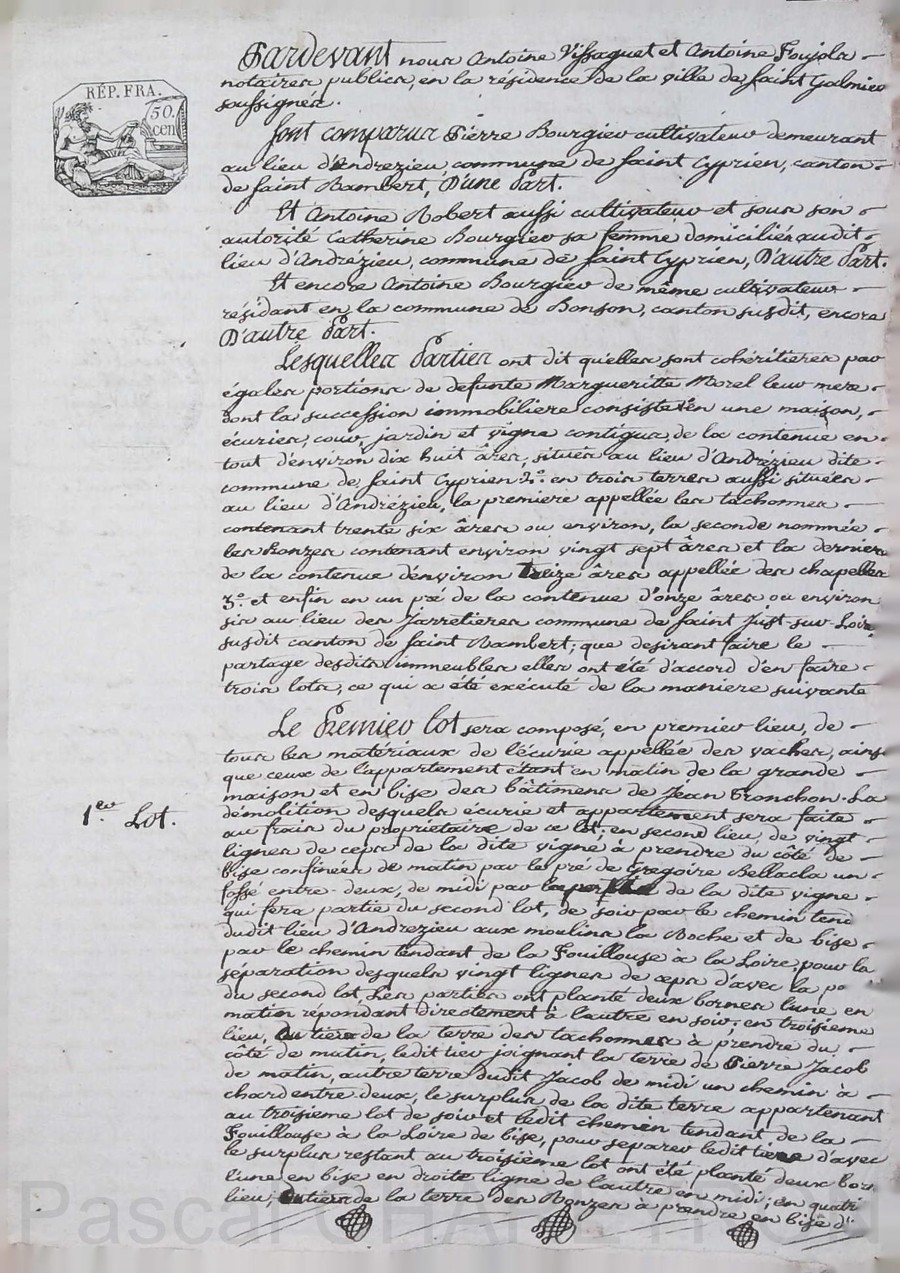 RÉP. FRA.
50.
cen
Pardevant nous Antoine Vissaguet et Antoine Poujola
notaires publics, en la résidence de la ville de Saint Galmier
soussignés.
Sont comparus Pierre Bourgier cultivateur demeurant
au lieu d'Andrezieu, commune de Saint Cyprien, canton
de Saint Rambert, D'une Part.
Et Antoine Robert aussi cultivateur et sous son
autorité Catherine Bourgier sa femme domiciliés audit
lieu d'Andrézieu, commune de Saint Cyprien, D'autre Part.
Et encore Antoine Bourgier de même cultivateur
résidant en la commune de Bonson, canton susdit, encore
D'autre Part.
Lesquelles Parties ont dit qu'elles sont cohéritieres par
égales portions de defunte Margueritte Morel leur mere
dont la succession immobiliere consiste 1° en une maison,
écuries, cour, jardin et vigne contigus, de la contenue en
tout d'environ dix huit âres, situés au lieu d'Andrézieu dite
commune de Saint Cyprien 2°. en trois terres aussi situées
au lieu d'Andrézieu, la premiere appellée les tachonnes
contenant trente six âres ou environ, la seconde nommée
les Ronzes contenant environ vingt sept âres et la derniere
de la contenue d'environ treize âres appellée des chapelles
3°. et enfin en un pré de la contenue d'onze âres ou environ
sis au lieu des Jarretieres commune de Saint Just sur Loire
susdit canton de Saint Rambert; que desirant faire le
partage desdits immeubles elles ont été d'accord d'en faire
trois lots, ce qui a été exécuté de la maniere suivante
Le Premier lot sera composé, en premier lieu, de
tous les matériaux de l'écurie appellée des vaches, ainsi
que ceux de l'appartement étant en matin de la grande
maison et en bise des bâtimens de Jean Tronchon. La
démolition desquels écurie et appartement sera faite
1.er Lot.
au frais du proprietaire de ce lot; en second lieu, de vingt
lignes de ceps de la dite vigne à prendre du côté de
bise confinées de matin par le pré de Gregoire Bellacla un
fossé entre-deux, de midi par de la dite vigne
qui fera partie du second lot, de soir par le chemin tend
dudit lieu d'Andrezieu aux moulins la Roche et de bise
par le chemin tendant de la Fouillouse à la Loire; pour la
séparation desquels vingt lignes de ceps d'avec la po
du second lot, Les parties ont planté deux bornes l'une en
matin répondant directement à l'autre en soir; en troisieme
lieu, du tiers de la terre des tachonnes à prendre du
côté de matin, ledit tiers joignant la terre de Pierre Jacob
de matin, autre terre dudit Jacob de midi un chemin à
chard entre deux, le surplus de la dite terre appartenant
au troisieme lot de soir et ledit chemin tendant de la
Fouillouse à la Loire de bise, pour separer ledit tiers d'avec
le surplus restant au troisième lot ont été planté deux bor
l'une en bise en droite ligne de l'autre en midi; en quatri
lieu, du tiers de la terre des Ronzes à prendre en bise d